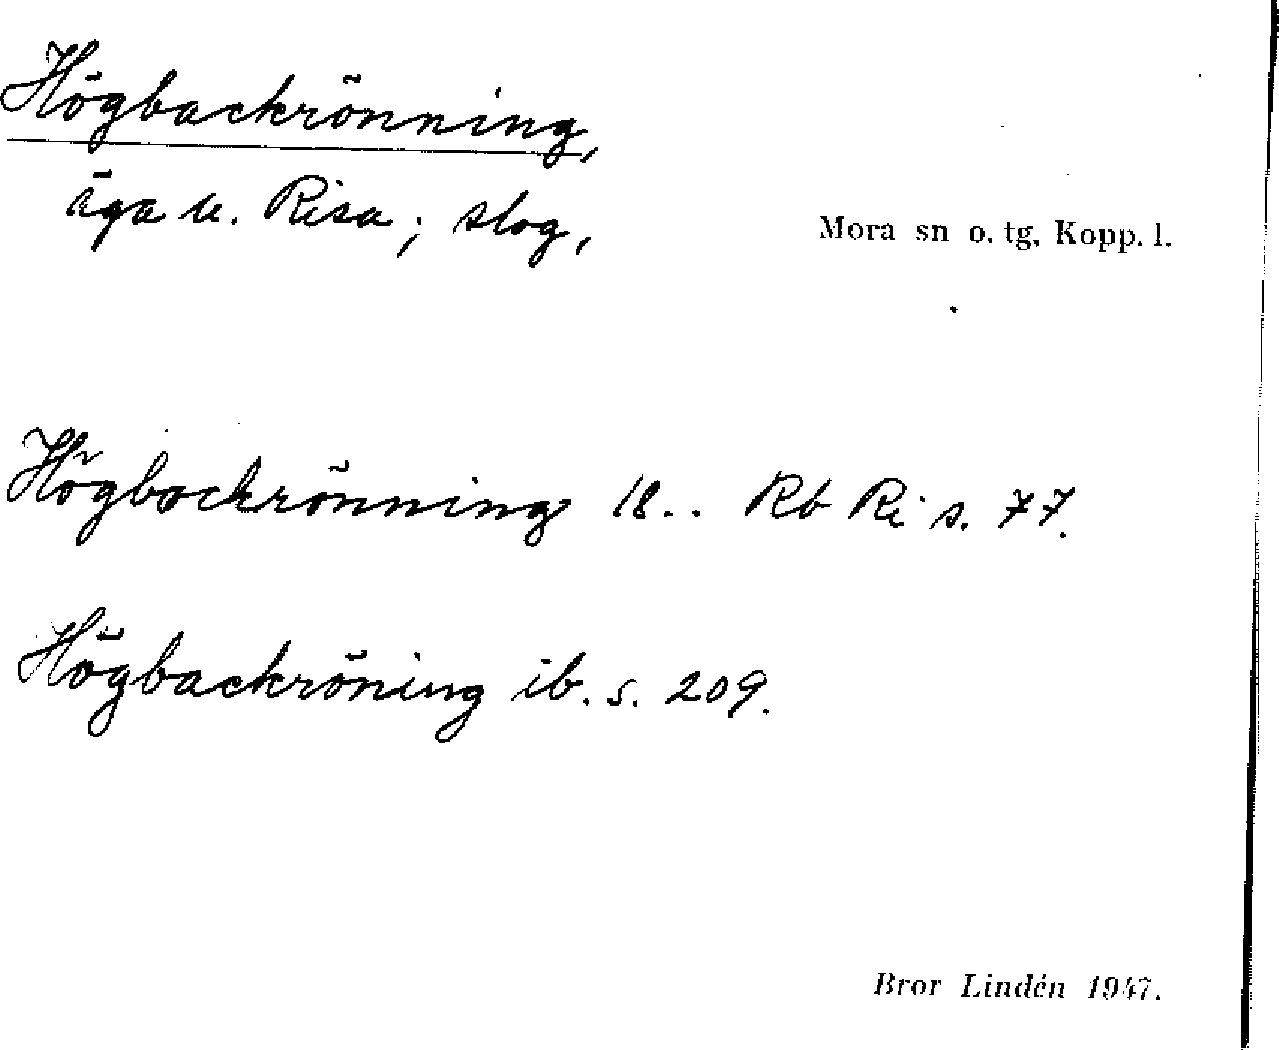 Högbackrönning,
äga u. Risa; slog,
Mora sn o. tg, Kopp. l.
Högbackrönning 18.. Rb Ri s. 77.
Högbackröning ib. s. 209.
Bror Lindén 1947.